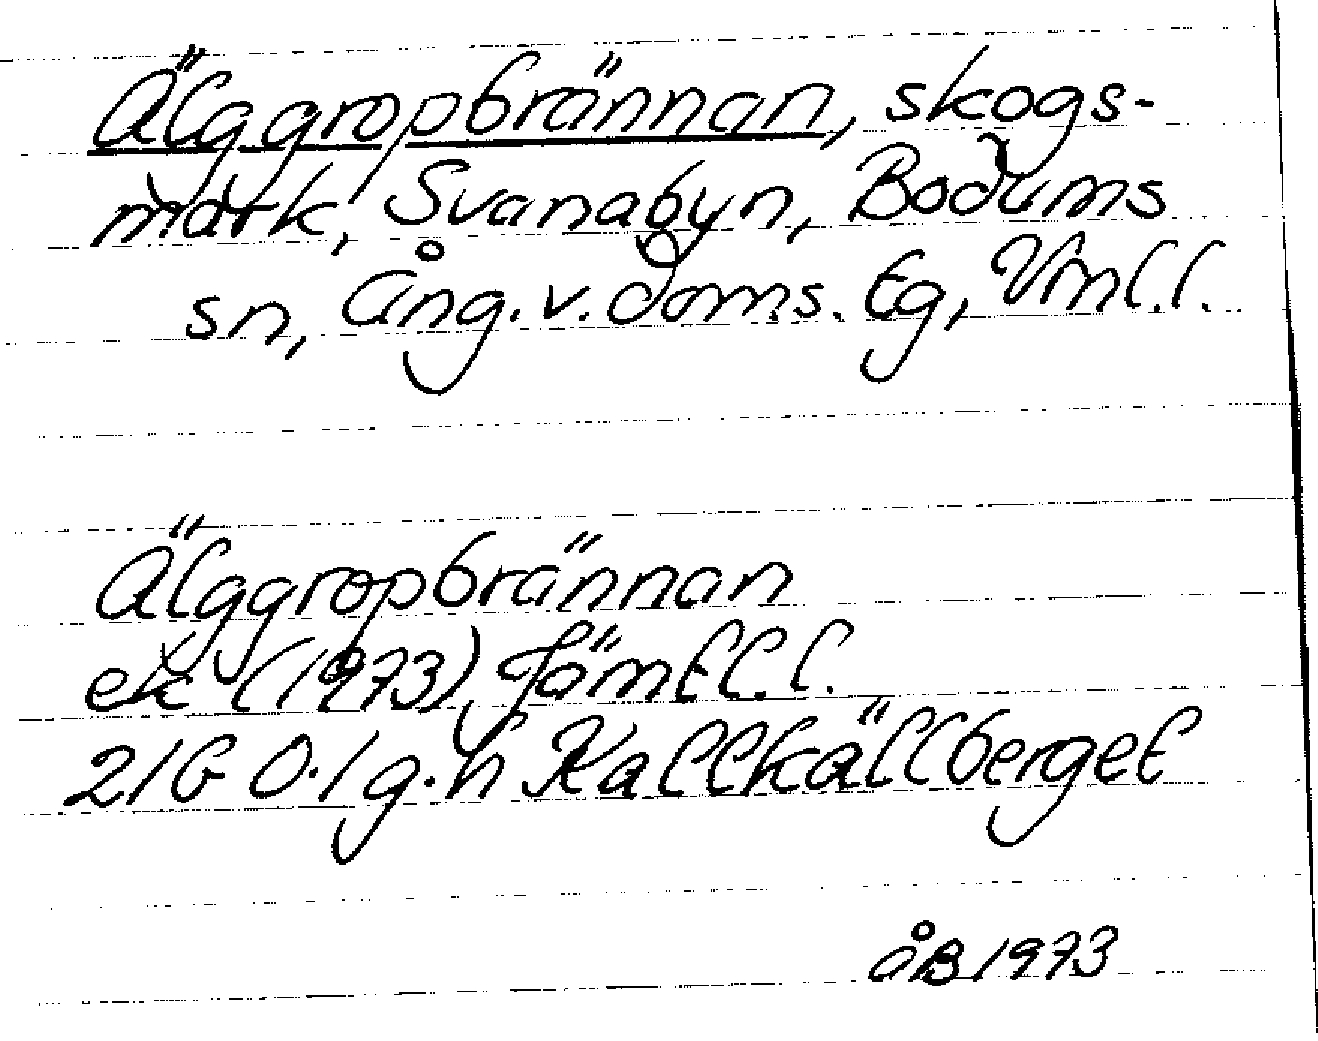 Älggropbrännan, skogs-
mark, Svanabyn, Bodums
sn, Ång. v. doms. tg, Vnl. l.
Älggropbrännan
ek (1973) Jämtl. l.
21G 0.1 g.h Kallkällberget
ÅB 1973